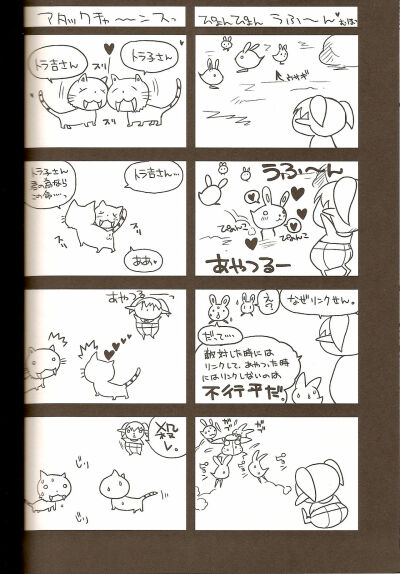 ぴょんぴょん うふ〜ん
うさぎ
うふ〜ん
ぴょんこ
ぴょんこ
あやつるー
なぜリンクせん。
え?
だって…
敵対した時には
リンクして、あやつった時
にはリンクしないのは
不行平だ。
ガブ
ガブ
ピョン
ピョン
アタックチャ〜ンス
トラ子さん
トラ吉さん
スリ
トラ吉さん…
トラ子さん
君の為なら
この命…
スリ
スリ
ああっ
あやつるーっ
殺し。
じり
じり